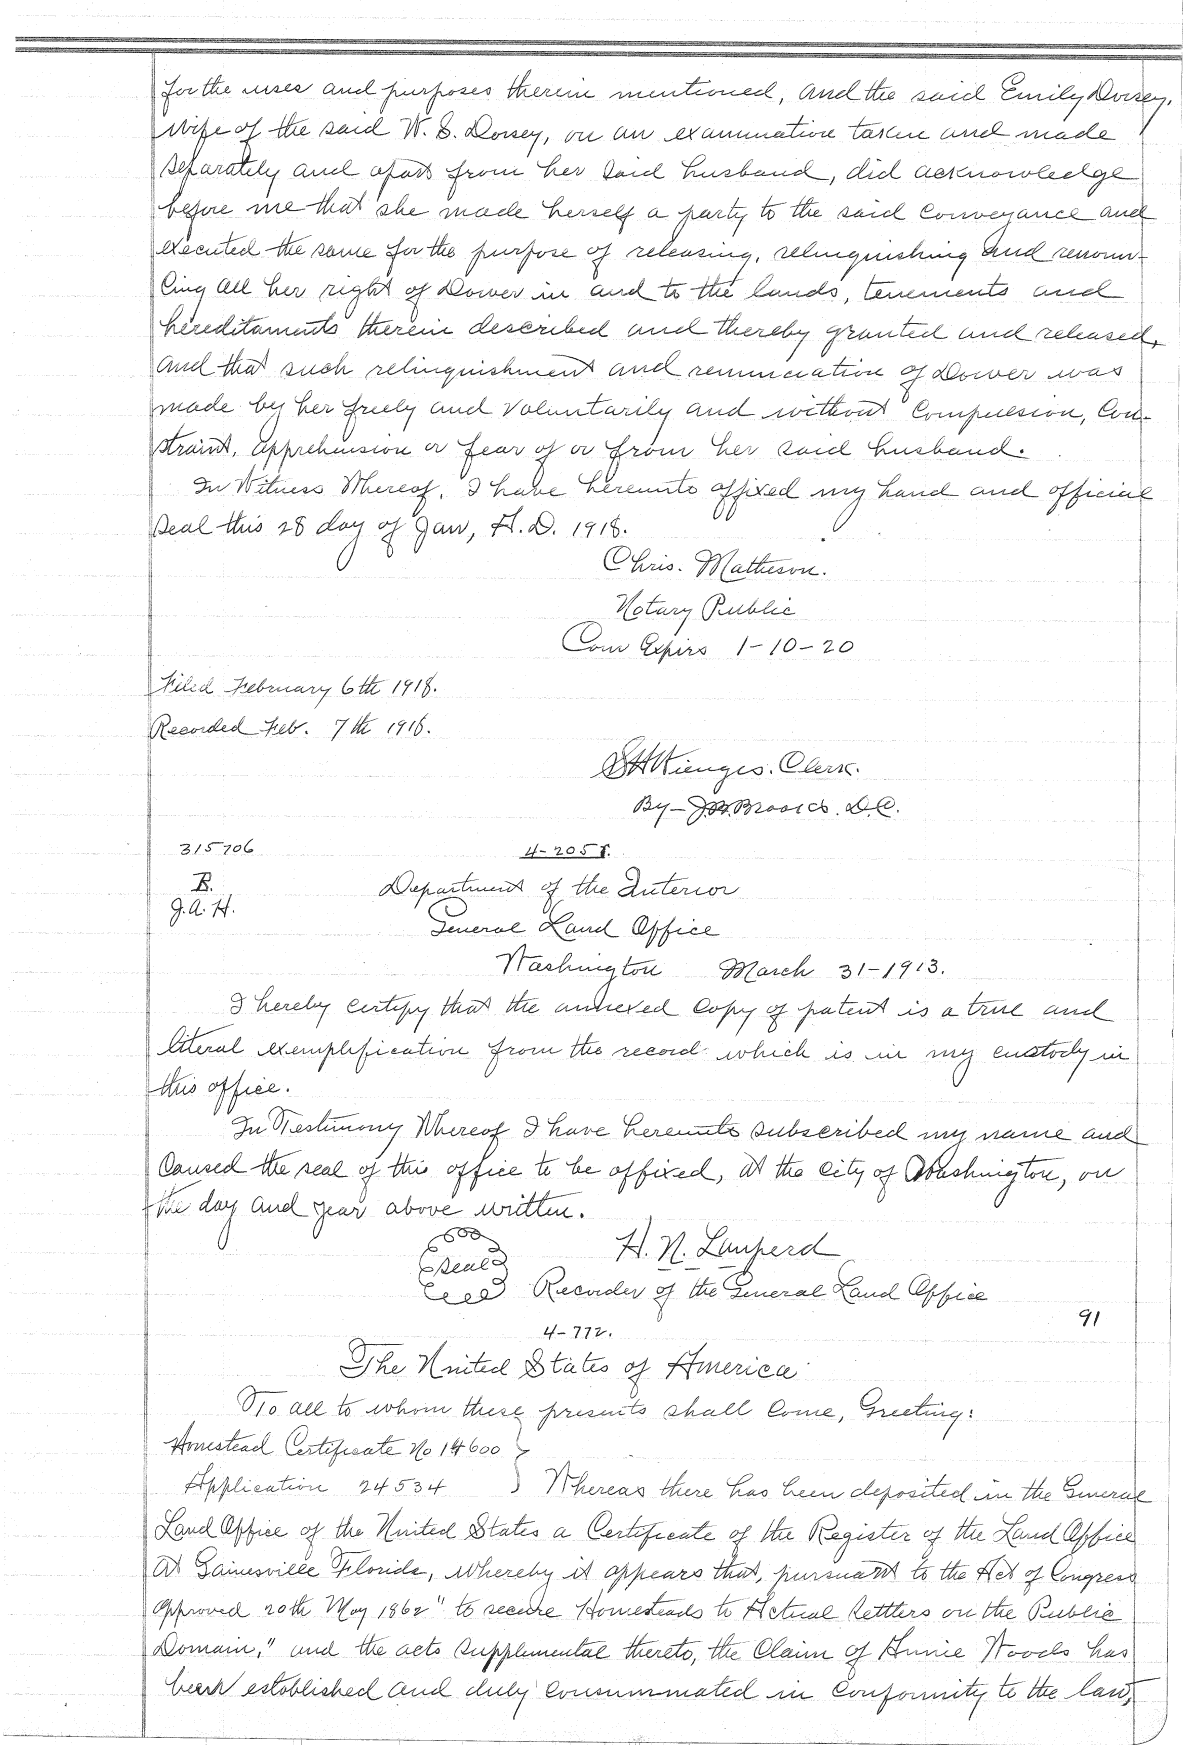 for the uses and purposes therein mentioned, and the said Emily Dorsey,
Wife of the said W. S. Dorsey, on an examination taken and made
separately and apart from her said husband, did acknowledge
before me that she made herself a party to the said conveyance and
executed the same for the purpose of releasing, relinquishing and renoun-
cing all her right of Dower in and to the lands, tenements and
hereditaments therein described and thereby granted and released,
and that such relinquishment and renunciation of Dower was
made by her freely and voluntarily and without compulsion, con-
straint, apprehension or fear of or from her said husband.
In Witness Whereof, I have hereunto affixed my hand and official
seal this 28 day of Jan, A.D. 1918.
Chris. Matheson.
Notary Public
Com Expirs 1-10-20
Filed February 6th 1918.
Recorded Feb. 7th 1918.
S H Wienges. Clerk.
By- J.B. Brooks. D.C.
315706 4-205 r.
R.
J.A.H.
Department of the Interior
General Land Office
Washington March 31-1913.
I hereby certify that the annexed copy of patent is a true and
literal exemplification from the record which is in my custody in
this office.
In Testimony Whereof I have hereunto subscribed my name and
caused the seal of this office to be affixed, at the city of Washington, on
the day and year above written.
Seal
H. N. Lanperd
Recorder of the General Land Office
91
4-772.
The United States of America
To all to whom these presents shall come, Greeting:
Homestead Certificate No 14600
Application 24534 } Whereas there has been deposited in the General
Land Office of the United States a Certificate of the Register of the Land Office
at Gainesville Florida, whereby it appears that, pursuant to the Act of Congress
approved 20th May 1862 "to secure Homesteads to Actual Settlers on the Public
Domain," and the acts supplemental thereto, the Claim of Annie Woods has
been established and duly consummated in conformity to the law,